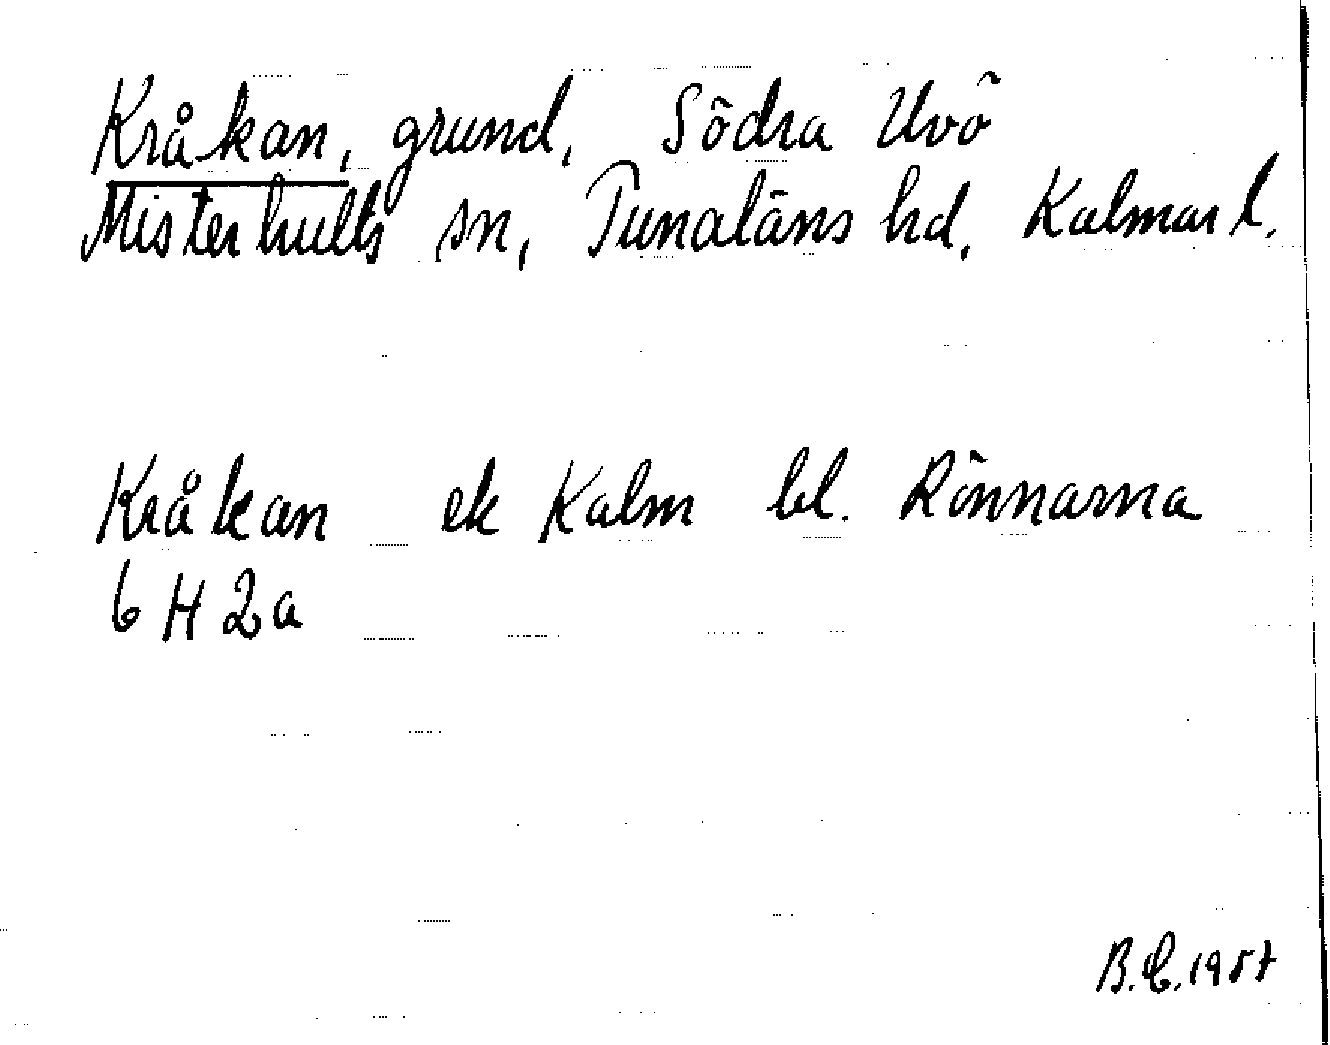 Kråkan, grund, Södra Uvö
Misterhults sn, Tunaläns hd, Kalmar l.
Kråkan ek Kalm bl. Rönnarna
6 H 2a
B.C. 1957